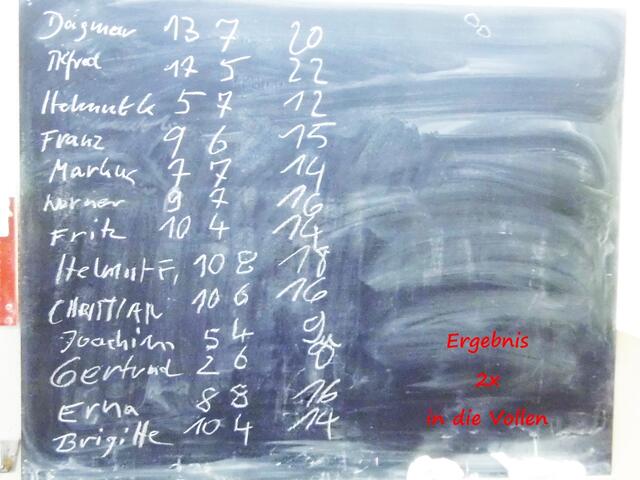 Dagmar 13 7 20
Alfred 17 5 22
Helmut K 5 7 12
Franz 9 6 15
Markus 7 7 14
Werner 9 7 16
Fritz 10 4 14
Helmut F. 10 8 18
CHRISTIAN 10 6 16
Joachim 5 4 9
Gertrud 2 6 8
Erna 8 8 16
Brigitte 10 4 14
Ergebnis
2x
in die Vollen